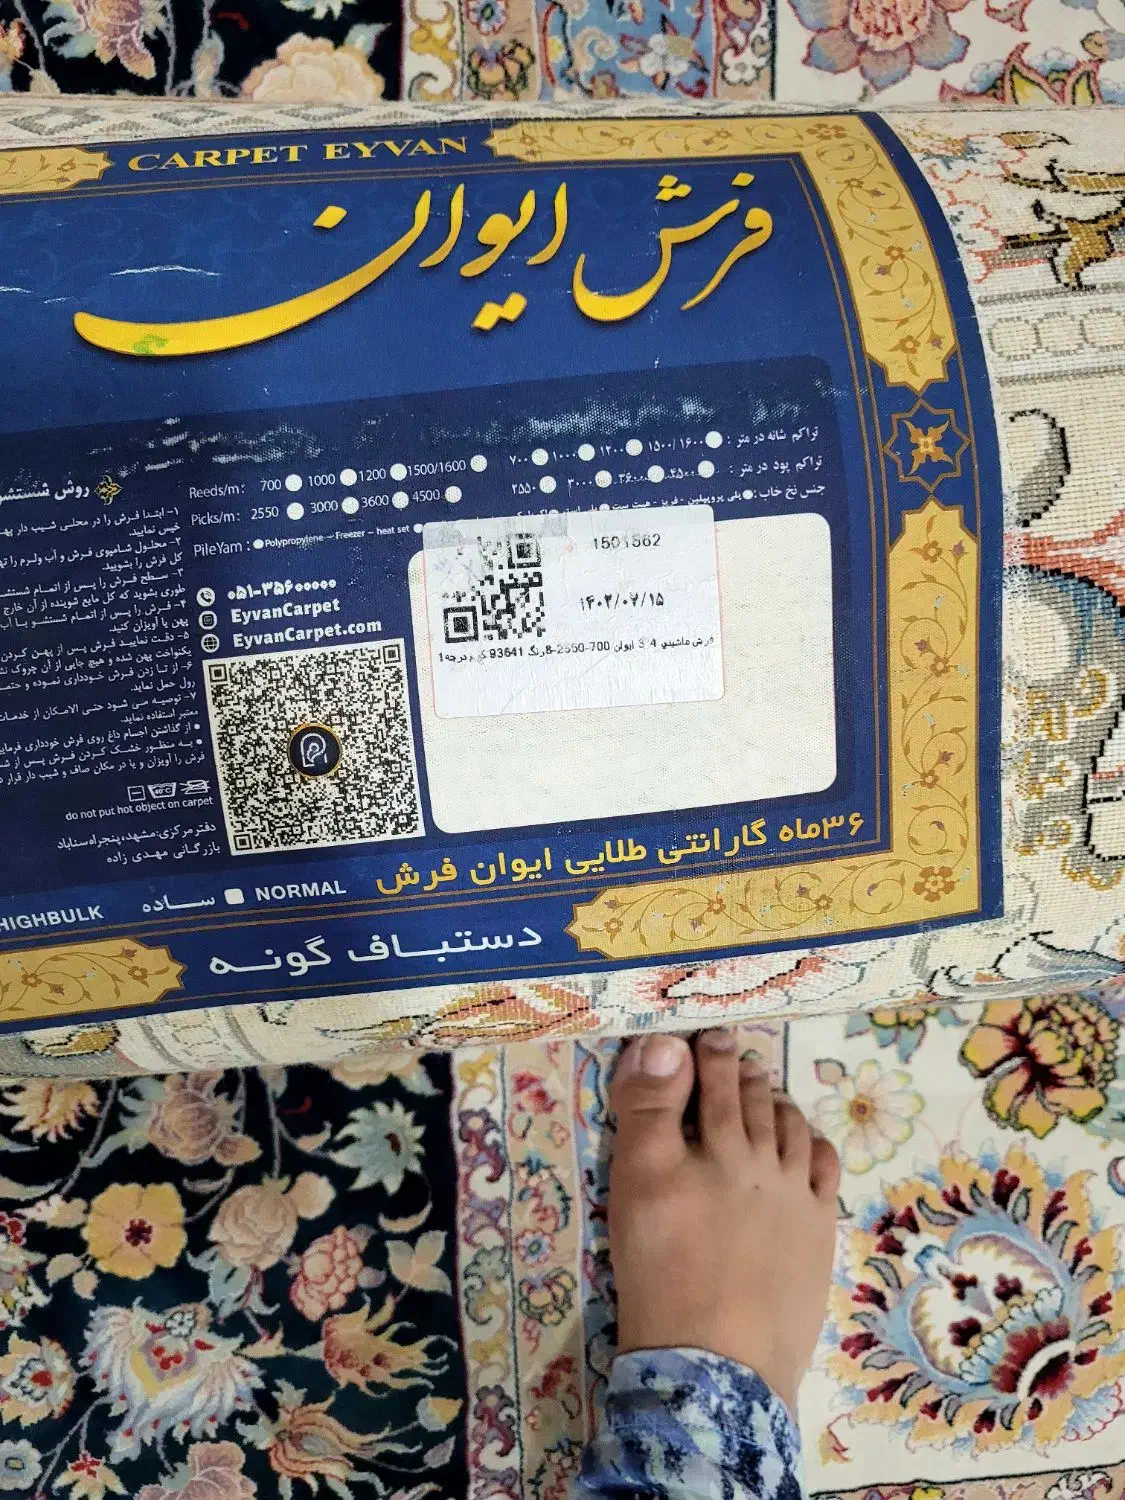 CARPET EYVAN
فرش ایوان
تراکم شانه در متر : ۱۵۰۰/۱۶۰۰ ۱۲۰۰ ۱۰۰۰ ۷۰۰
تراکم پود در متر : ۴۵۰۰ ۳۶۰۰ ۳۰۰۰ ۲۵۵۰
جنس نخ خاب : پلی پروپیلین - فریز - هیت ست
Reeds/m: 700 1000 1200 1500/1600
Picks/m: 2550 3000 3600 4500
PileYarn : Polypropylene – Freezer – heat set
1501562
۱۴۰۲/۰۷/۱۵
فرش ماشینی 4*3 ایوان 700-2550-8رنگ 93641 کرم درجه1
۰۵۱-۳۵۶۰۰۰۰۰
EyvanCarpet
EyvanCarpet.com
روش شستشو
۱- ابتدا فرش را در محلی شیب دار
خیس نمایید.
۲- محلول شامپوی فرش و آب ولرم را
کل فرش را بشویید.
۳- سطح فرش را پس از اتمام شستشو
طوری بشوید که کل مایع شوینده از آن خارج
۴- فرش را پس از اتمام شستشو با آب
پهن یا آویزان کنید.
۵- دقت نمایید فرش پس از پهن کردن
یکنواخت پهن شده و هیچ جایی از آن چروک
۶- از تا زدن فرش خودداری نموده و
رول حمل نماید.
۷- توصیه می شود حتی الامکان از خدمات
معتبر استفاده نماید.
از گذاشتن اجسام داغ روی فرش خودداری
به منظور خشک کردن فرش پس از
فرش را آویزان و یا در مکان صاف و شیب دار قرار
do not put hot object on carpet
دفتر مرکزی:مشهد،پنجراه سناباد
بازرگانی مهدی زاده
۳۶ماه گارانتی طلایی ایوان فرش
HIGHBULK ساده NORMAL
دستبـاف گونـه